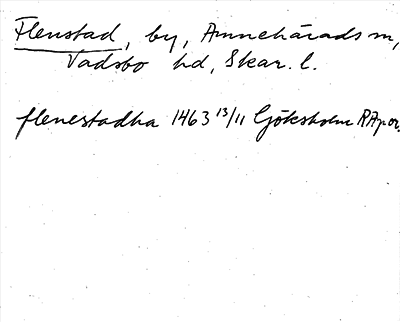 Flenstad, by, Amnehärads sn,
Vadsbo hd, Skar. l.
flenestadha 1463 13/11 Göksholm RAp or.